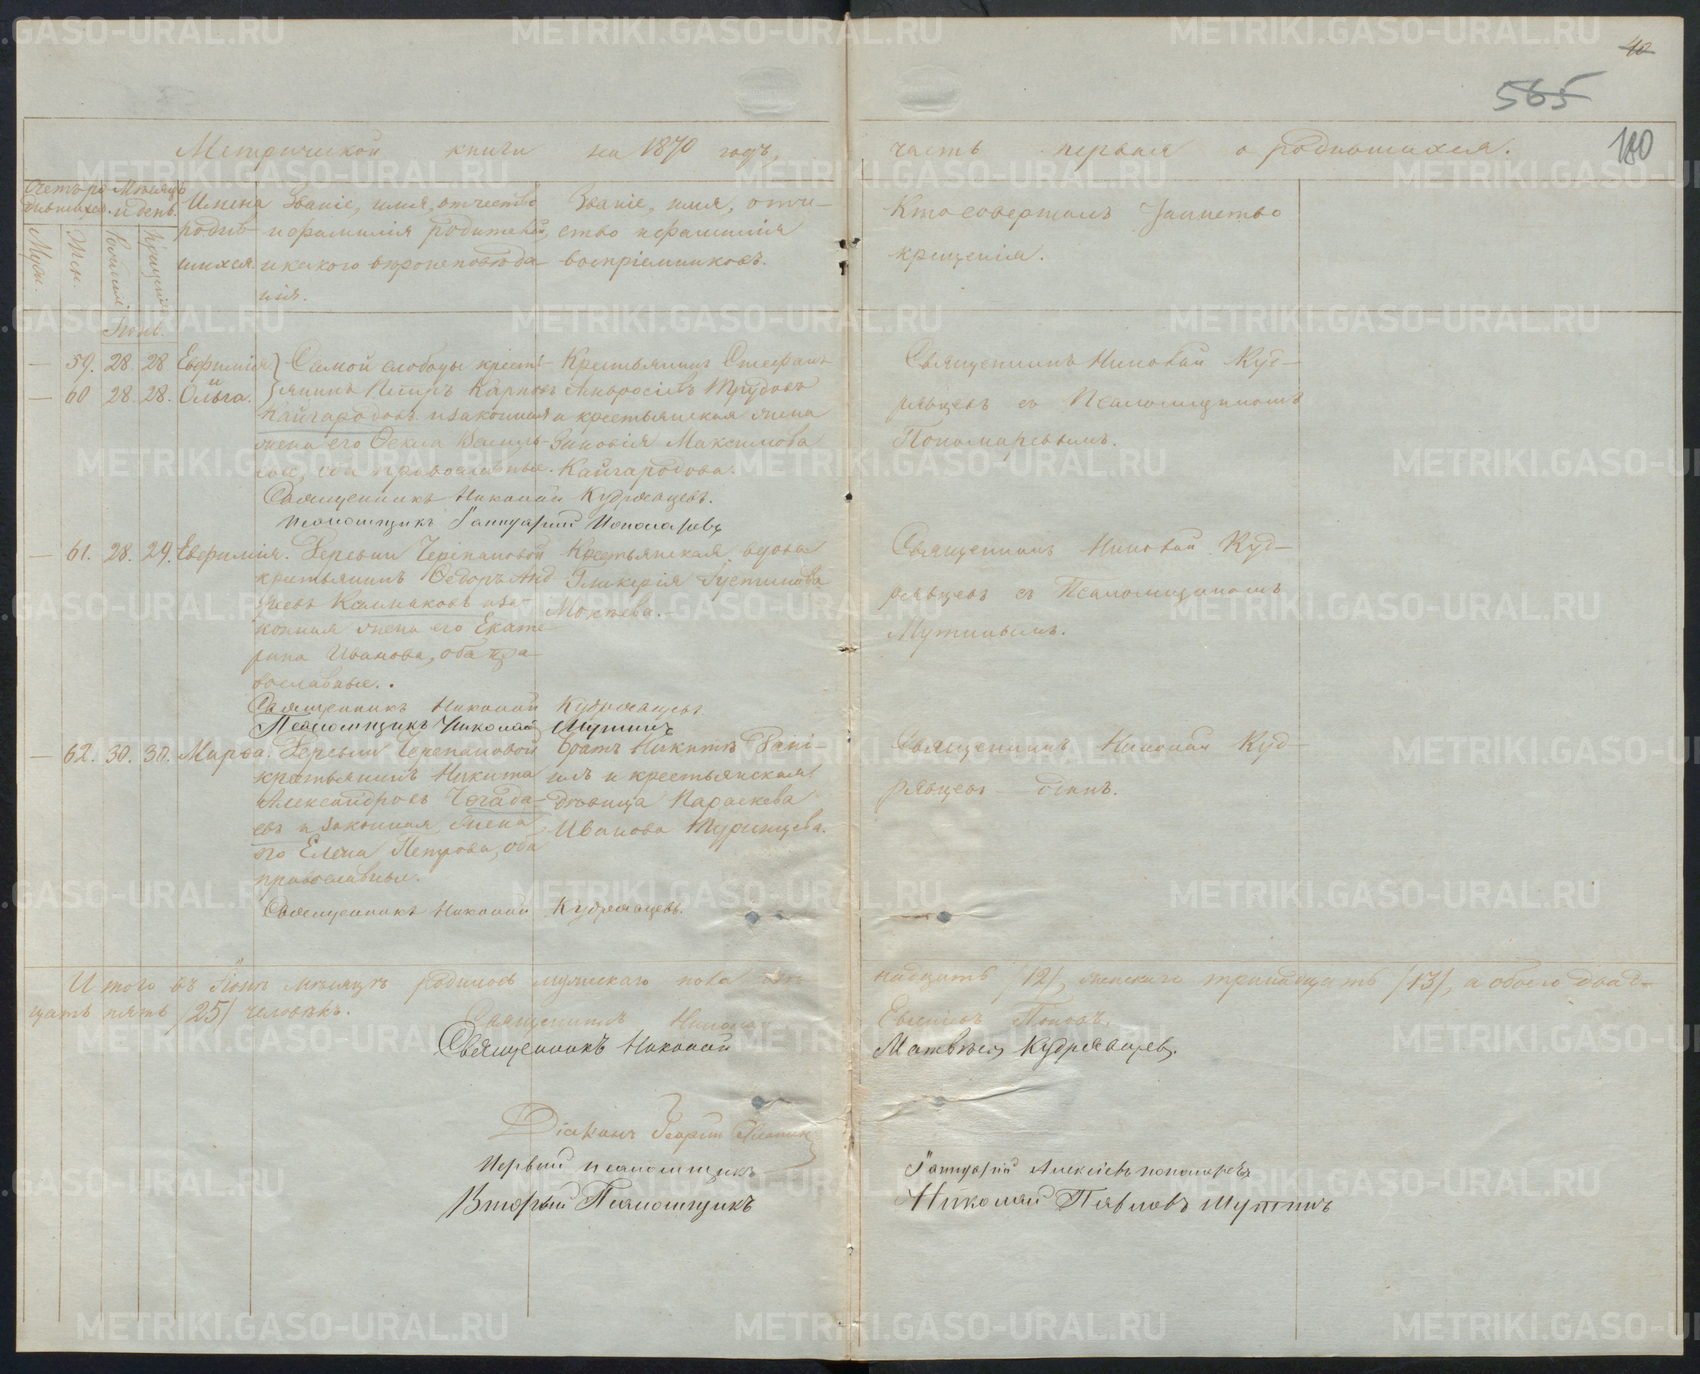 40
565
180
Метрической книги на 1870 годъ,
часть первая о родившихся.
Счетъ ро
дившихся.
Мѣсяцъ
и день.
Муж.
Жен.
Рожденія.
Крещенія.
Имена
родив
шихся.
Званіе, имя, отчество
и фамилія родителей,
и какого вѣроисповѣда
нія.
Званіе, имя, отче-
ство и фамилія
воспріемниковъ.
Кто совершалъ Таинство
крещенія.
Іюнь.
— 59. 28. 28 Евфимія
и
— 60 28. 28. Ольга.
Самой слободы кресть-
янинъ Петръ Карповъ
Кайгародовъ и законная
жена его Ѳекла Василь-
ева, оба православные.
Крестьянинъ Стефанъ
Амвросіевъ Трудовъ
и крестьянская жена
Зиновія Максимова
Кайгародова.
Священникъ Николай Кудрявцевъ.
Псаломщикъ Іаннуарий Пономаревъ
Священникъ Николай Куд-
рявцевъ съ Псаломщикомъ
Пономаревымъ.
— 61. 28. 29. Евфимія.
Деревни Черепановой
крестьянинъ Ѳедоръ Анд
реевъ Калмаковъ и за-
конная жена его Екате-
рина Иванова, оба пра-
вославные.
Крестьянская вдова
Гликерія Іустинова
Мокѣева.
Священникъ Николай Кудрявцевъ
Псаломщикъ Николай Мутинъ
Священникъ Николай Куд-
рявцевъ съ Псаломщикомъ
Мутинымъ.
— 62. 30. 30. Марѳа.
Деревни Черепановой
крестьянинъ Никита
Александровъ Чегада-
евъ и законная жена
его Елена Петрова, оба
православные.
Братъ Никиты Дані-
илъ и крестьянская
дѣвица Параскева
Иванова Туринцева.
Священникъ Николай Кудрявцевъ.
Священникъ Николай Куд-
рявцевъ — одинъ.
Итого въ Іюнѣ мѣсяцѣ родилось мужскаго пола две
надцать /12/, женскаго тринадцать /13/, а обоего двад-
цать пять /25/ человѣкъ.
Священникъ Никола
Евгеніевъ Поповъ.
Священникъ Николай
Матвѣевъ Кудрявцевъ.
Діаконъ Георгій
Первый псаломщикъ
Іаннуарій Алексіевъ Пономаревъ
Вторый Псаломщикъ
Николай Павловъ Мутинъ
METRIKI.GASO-URAL.RU